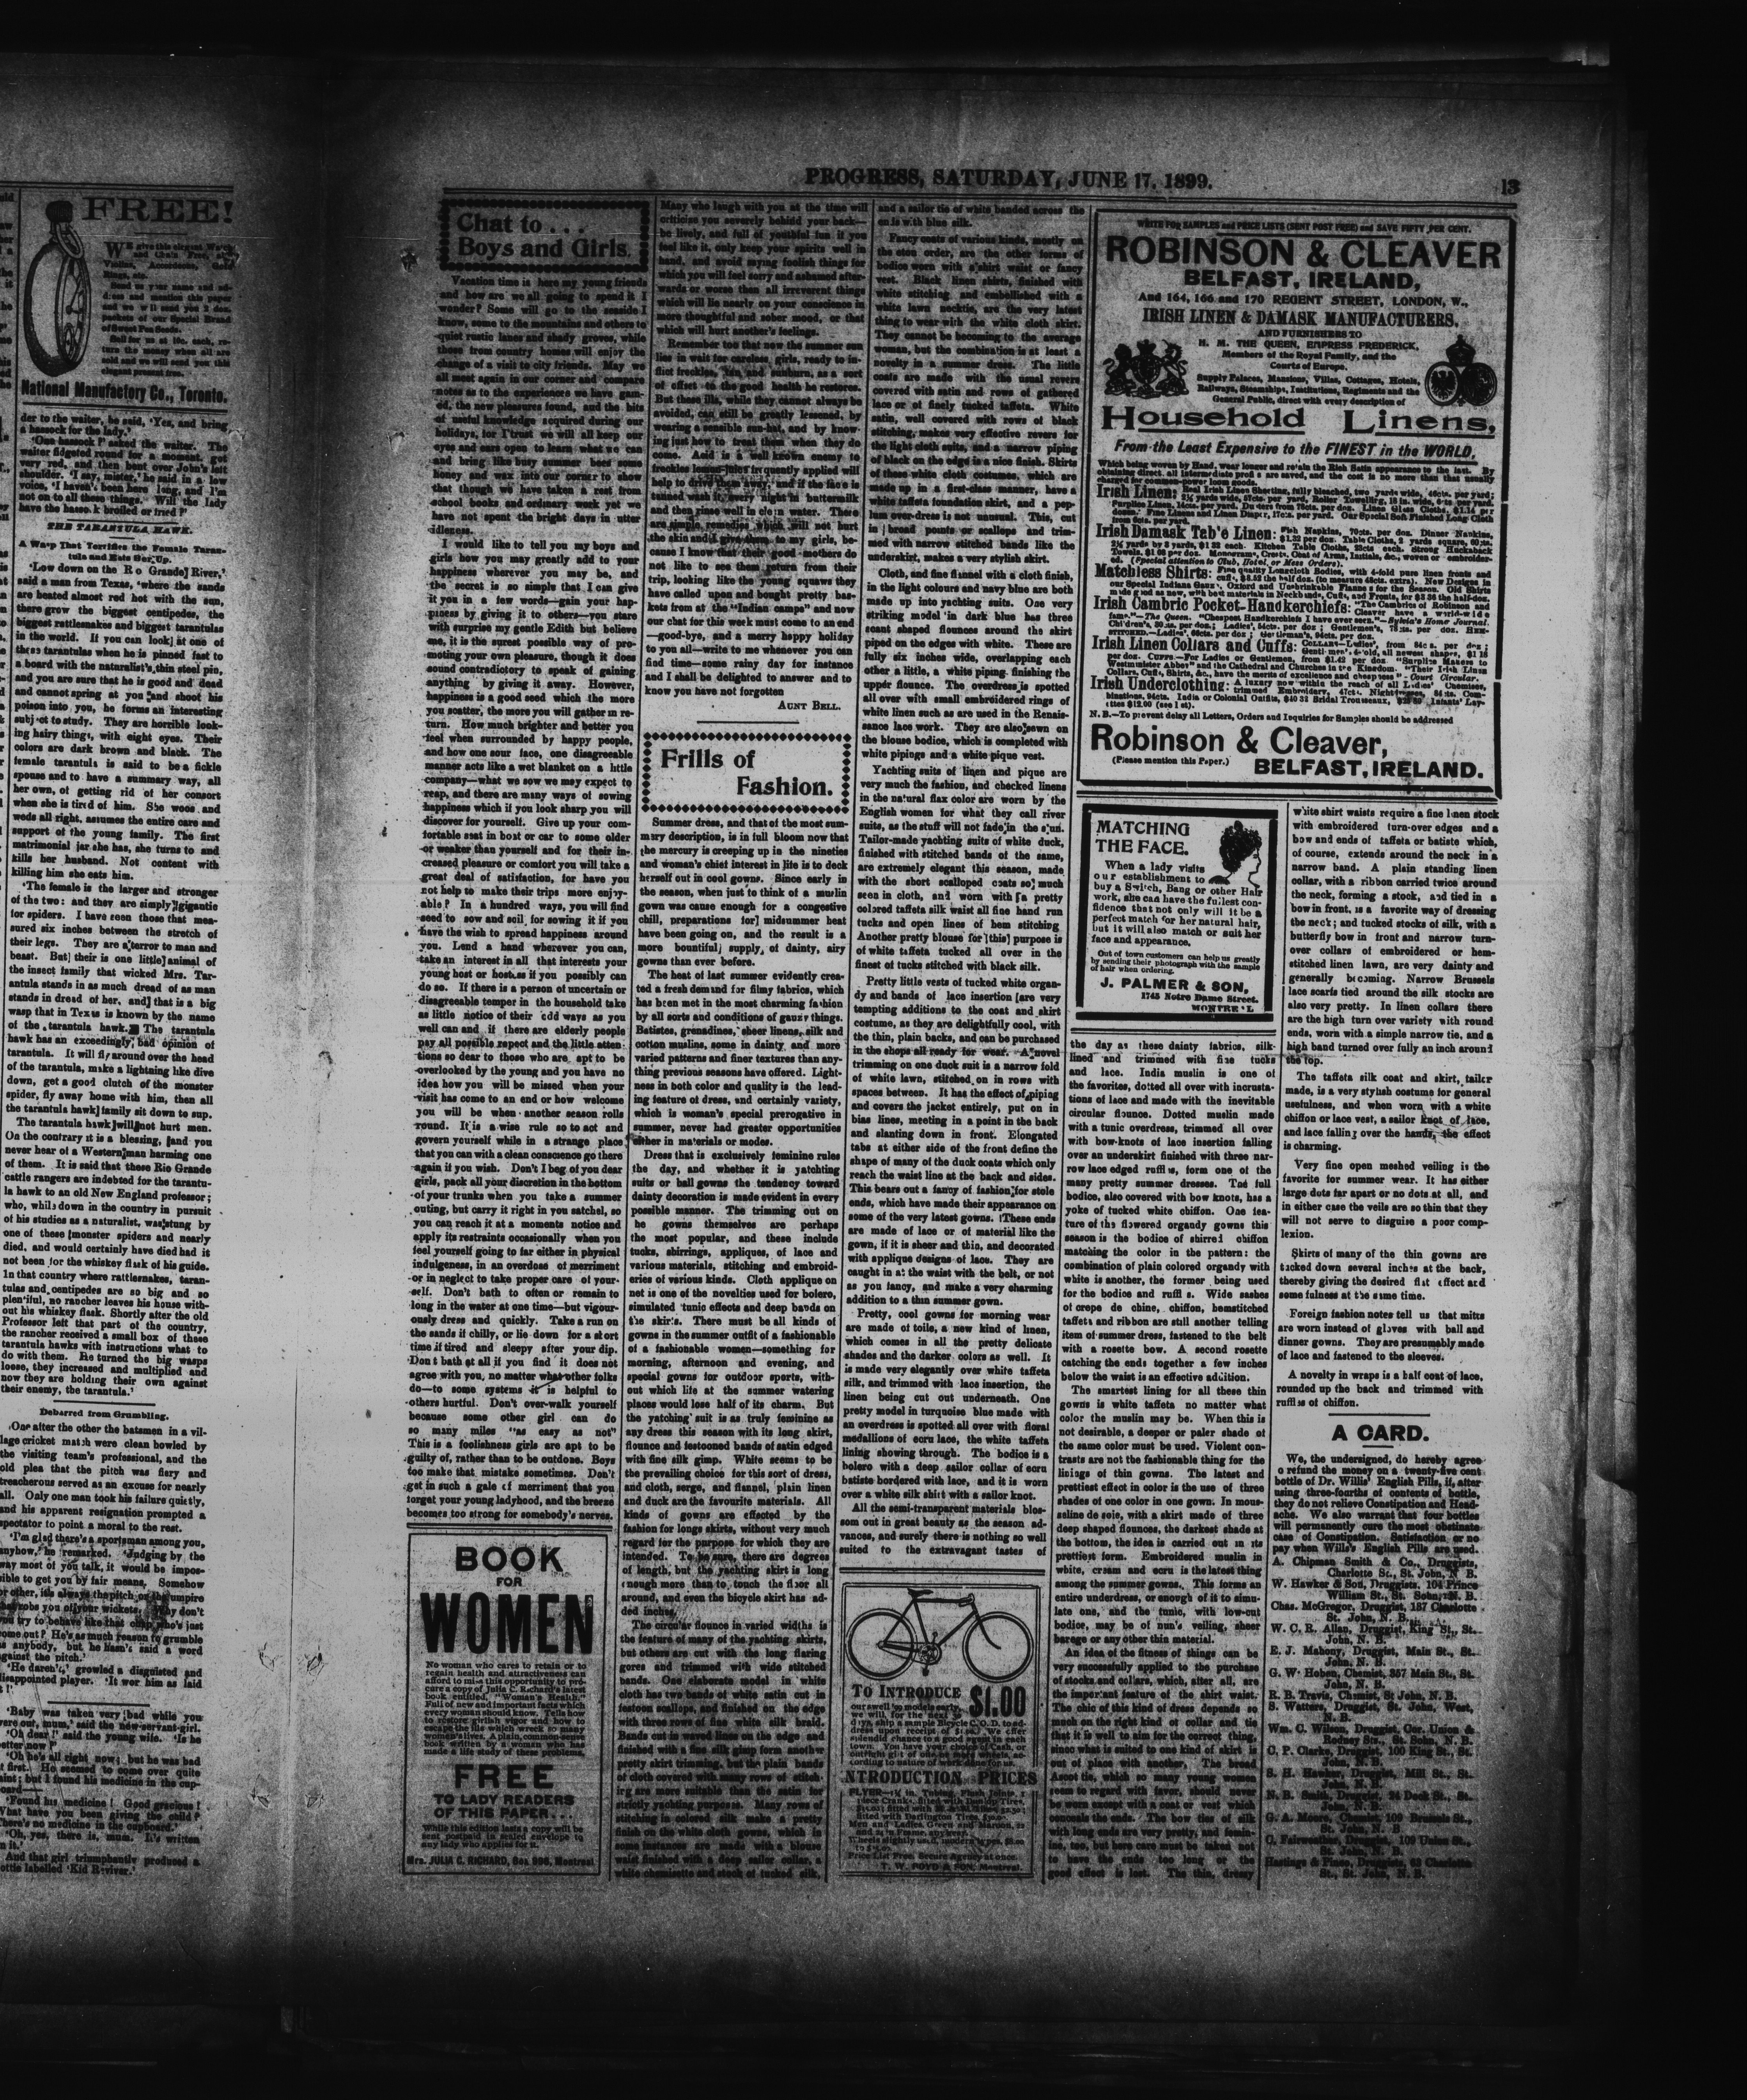 FREE!
National Manufactory Co., Toronto.
der to the waiter, he said, 'Yes, and bring
a hassock for the lady.'
'One hassock?' asked the waiter. The
waiter fidgeted round for a moment, got
very red, and then bent over John's left
shoulder. 'I say, mister,' he said in a low
voice, 'I haven't been here long, and I'm
not on to all these things. Will the lady
have the hassock broiled or fried?'
THE TARANTULA HAWK.
A Wasp That Terrifies the Female Taran-
tula and Eats Her Up.
'Low down on the Rio Grande River,'
said a man from Texas, 'where the sands
are heated almost red hot with the sun,
there grow the biggest centipedes, the
biggest rattlesnakes and biggest tarantulas
in the world. If you can look at one of
these tarantulas when he is pinned fast to
a board with the naturalist's thin steel pin,
and you are sure that he is good and dead
and cannot spring at you and shoot his
poison into you, he forms an interesting
subject to study. They are horrible look-
ing hairy things, with eight eyes. Their
colors are dark brown and black. The
female tarantula is said to be a fickle
spouse and to have a summary way, all
her own, of getting rid of her consort
when she is tired of him. She wooes and
weds all right, assumes the entire care and
support of the young family. The first
matrimonial jar she has, she turns to and
kills her husband. Not content with
killing him she eats him.
'The female is the larger and stronger
of the two: and they are simply gigantic
for spiders. I have seen those that mea-
sured six inches between the stretch of
their legs. They are a terror to man and
beast. But their is one little animal of
the insect family that wicked Mrs. Tar-
antula stands in as much dread of as man
stands in dread of her, and that is a big
wasp that in Texas is known by the name
of the tarantula hawk. The tarantula
hawk has an exceedingly bad opinion of
tarantula. It will fly around over the head
of the tarantula, make a lightning like dive
down, get a good clutch of the monster
spider, fly away home with him, then all
the tarantula hawk family sit down to sup.
The tarantula hawk will not hurt men.
On the contrary it is a blessing, and you
never hear of a Western man harming one
of them. It is said that these Rio Grande
cattle rangers are indebted for the tarantu-
la hawk to an old New England professor;
who, while down in the country in pursuit
of his studies as a naturalist, was stung by
one of these monster spiders and nearly
died, and would certainly have died had it
not been for the whiskey flask of his guide.
In that country where rattlesnakes, taran-
tulas and centipedes are so big and so
plentiful, no rancher leaves his house with-
out his whiskey flask. Shortly after the old
Professor left that part of the country,
the rancher received a small box of these
tarantula hawks with instructions what to
do with them. He turned the big wasps
loose, they increased and multiplied and
now they are holding their own against
their enemy, the tarantula.'
Debarred from Grumbling.
One after the other the batsmen in a vil-
lage cricket match were clean bowled by
the visiting team's professional, and the
old plea that the pitch was fiery and
treacherous served as an excuse for nearly
all. Only one man took his failure quietly,
and his apparent resignation prompted a
spectator to point a moral to the rest.
'I'm glad there's a sportsman among you,
anyhow,' he remarked. 'Judging by the
way most of you talk, it would be impos-
sible to get you by fair means. Somehow
or other, it's always the pitch or the umpire
that robs you of your wickets. Why don't
you try to behave like that chap who's just
come out? He's as much reason to grumble
as anybody, but he hasn't said a word
against the pitch.'
'He daren't,' growled a disgusted and
disappointed player. 'It wor him as laid
it!'
'Baby was taken very bad while you
were out, mum,' said the new servant-girl.
'Oh dear!' said the young wife. 'Is he
better now?'
'Oh he's all right now; but he was bad
at first. He seemed to come over quite
faint; but I found his medicine in the cup-
board—'
'Found his medicine! Good gracious!
What have you been giving the child?
There's no medicine in the cupboard.'
'Oh, yes, there is, mum. It's written
on it.'
And that girl triumphantly produced a
bottle labelled 'Kid Reviver.'
PROGRESS, SATURDAY, JUNE 17, 1899.
13
Chat to...
Boys and Girls.
Vacation time is here my young friends
and how are we all going to spend it I
wonder? Some will go to the seaside I
know, some to the mountains and others to
quiet rustic lanes and shady groves, while
those from country homes will enjoy the
change of a visit to city friends. May we
all meet again in our corner and compare
notes as to the experience we have gain-
ed, the new pleasures found, and the bits
of useful knowledge acquired during our
holidays, for I trust we will all keep our
eyes and ears open to learn what we can
and bring like busy summer bees some
honey and wax into our corner to show
that though we have taken a rest from
school books and ordinary work yet we
have not spent the bright days in utter
idleness.
I would like to tell you my boys and
girls how you may greatly add to your
happiness wherever you may be, and
the secret is so simple that I can give
it you in a few words—gain your hap-
piness by giving it to others—you stare
with surprise my gentle Edith but believe
me, it is the surest possible way of pro-
moting your own pleasure, though it does
sound contradictory to speak of gaining
anything by giving it away. However,
happiness is a good seed which the more
you scatter, the more you will gather in re-
turn. How much brighter and better you
feel when surrounded by happy people,
and how one sour face, one disagreeable
manner acts like a wet blanket on a little
company—what we sow we may expect to
reap, and there are many ways of sowing
happiness which if you look sharp you will
discover for yourself. Give up your com-
fortable seat in boat or car to some older
or weaker than yourself and for their in-
creased pleasure or comfort you will take a
great deal of satisfaction, for have you
not help to make their trips more enjoy-
able? In a hundred ways, you will find
seed to sow and soil for sowing it if you
have the wish to spread happiness around
you. Lend a hand wherever you can,
take an interest in all that interests your
young host or hostess if you possibly can
do so. If there is a person of uncertain or
disagreeable temper in the household take
as little notice of their odd ways as you
well can and if there are elderly people
pay all possible repect and the little atten
tions so dear to those who are apt to be
overlooked by the young and you have no
idea how you will be missed when your
visit has come to an end or how welcome
you will be when another season rolls
round. It is a wise rule so to act and
govern yourself while in a strange place
that you can with a clean conscience go there
again if you wish. Don't I beg of you dear
girls, pack all your discretion in the bottom
of your trunks when you take a summer
outing, but carry it right in you satchel, so
you can reach it at a moments notice and
apply its restraints occasionally when you
feel yourself going to far either in physical
indulgence, in an overdose of merriment
or in neglect to take proper care of your-
self. Don't bath to often or remain to
long in the water at one time—but vigour-
ously dress and quickly. Take a run on
the sands if chilly, or lie down for a short
time if tired and sleepy after your dip.
Don't bath at all if you find it does not
agree with you, no matter what other folks
do—to some systems it is helpful to
others hurtful. Don't over-walk yourself
because some other girl can do
so many miles "as easy as not"
This is a foolishness girls are apt to be
guilty of, rather than to be outdone. Boys
too make that mistake sometimes. Don't
get in such a gale of merriment that you
forget your young ladyhood, and the breeze
becomes too strong for somebody's nerves.
BOOK
FOR
WOMEN
No woman who cares to retain or to
regain health and attractiveness can
afford to miss this opportunity to pro-
cure a copy of Julia C. Richard's latest
book entitled, "Woman's Health."
Full of new and important facts which
every woman should know. Tells how
to restore girlish vigor and how to
escape the ills which wreck so many
women's lives. A plain, common-sense
book written by a woman who has
made a life study of these problems.
FREE
TO LADY READERS
OF THIS PAPER...
While this edition lasts a copy will be
sent postpaid in sealed envelope to
any lady who applies for it.
Mrs. JULIA C. RICHARD, Box 996, Montreal
Many who laugh with you at the time will
criticise you severely behind your back—
be lively, and full of youthful fun if you
feel like it, only keep your spirits well in
hand, and avoid saying foolish things for
which you will feel sorry and ashamed after-
wards or worse then all irreverent things
which will lie nearly on your conscience in
more thoughtful and sober mood, or that
which will hurt another's feelings.
Remember too that now the summer sun
lies in wait for careless girls, ready to in-
flict freckles, tan and sunburn, as a sort
of offset to the good health he restores.
But these ills, while they cannot always be
avoided, can still be greatly lessened, by
wearing a sensible sun-hat, and by know-
ing just how to treat them when they do
come. Acid is a well known enemy to
freckles lemon-juice frequently applied will
help to drive them away, and if the face is
tanned wash it every night in buttermilk
and then rinse well in clean water. There
are simple remedies which will not hurt
the skin and I give them to my girls, be-
cause I know that their good mothers do
not like to see them return from their
trip, looking like the young squaws they
have called upon and bought pretty bas-
kets from at the "Indian camps" and now
our chat for this week must come to an end
—good-bye, and a merry happy holiday
to you all—write to me whenever you can
find time—some rainy day for instance
and I shall be delighted to answer and to
know you have not forgotten
AUNT BELL.
Frills of
Fashion.
Summer dress, and that of the most sum-
mary description, is in full bloom now that
the mercury is creeping up in the nineties
and woman's chief interest in life is to deck
herself out in cool gowns. Since early in
the season, when just to think of a muslin
gown was cause enough for a congestive
chill, preparations for midsummer heat
have been going on, and the result is a
more bountiful supply of dainty, airy
gowns than ever before.
The heat of last summer evidently crea-
ted a fresh demand for filmy fabrics, which
has been met in the most charming fashion
by all sorts and conditions of gauzy things.
Batistes, grenadines, sheer linens, silk and
cotton muslins, some in dainty and more
varied patterns and finer textures than any-
thing previous seasons have offered. Light-
ness in both color and quality is the lead-
ing feature of dress, and certainly variety,
which is woman's special prerogative in
summer, never had greater opportunities
either in materials or modes.
Dress that is exclusively feminine rules
the day, and whether it is yatchting
suits or ball gowns the tendency toward
dainty decoration is made evident in every
possible manner. The trimming out on
he gowns themselves are perhaps
the most popular, and these include
tucks, shirrings, appliques, of lace and
various materials, stitching and embroid-
eries of various kinds. Cloth applique on
net is one of the novelties used for bolero,
simulated tunic effects and deep bands on
the skirts. There must be all kinds of
gowns in the summer outfit of a fashionable
of a fashionable women—something for
morning, afternoon and evening, and
special gowns for outdoor sports, with-
out which life at the summer watering
places would lose half of its charm. But
the yatching suit is as truly feminine as
any dress this season with its long skirt,
flounce and festooned bands of satin edged
with fine silk gimp. White seems to be
the prevailing choice for this sort of dress,
and cloth, serge, and flannel, plain linen
and duck are the favourite materials. All
kinds of gowns are effected by the
fashion for longs skirts, without very much
regard for the purpose for which they are
intended. To be sure, there are degrees
of length, but the yachting skirt is long
enough more than to touch the floor all
around, and even the bicycle skirt has ad-
ded inches.
The circular flounce in varied widths is
the feature of many of the yachting skirts,
but others are cut with the long flaring
gores and trimmed with wide stitched
bands. One elaborate model in white
cloth has two bands of white satin cut in
festoon scallops, and finished on the edge
with three rows of fine white silk braid.
Bands cut in waved lines on the edge and
finished with a fine silk gimp form another
pretty skirt trimming, but the plain bands
of cloth covered with many rows of stitch-
ing are more suitable than the satin for
strictly yachting purpose. Many rows of
stitching in colored silk make a pretty
finish on the white cloth gowns, which in
some instances are made with a blouse
waist finished with a deep sailor collar, a
white chemisette and stock of tucked silk,
and a sailor tie of white banded across the
ends with blue silk.
Fancy coats of various kinds, mostly on
the eton order, are the other forms of
bodice worn with a shirt waist or fancy
vest. Black linen shirts, finished with
white stitching and embellished with a
white lawn necktie, are the very latest
thing to wear with the white cloth skirt.
They cannot be becoming to the average
woman, but the combination is at least a
novelty in a summer dress. The little
coats are made with the usual revers
covered with satin and rows of gathered
lace or of finely tucked taffeta. White
satin, well covered with rows of black
stitching, makes very effective revers for
the light cloth suits, and a narrow piping
of black on the edge is a nice finish. Skirts
of these white cloth costumes, which are
made up in a first-class manner, have a
white taffeta foundation skirt, and a pep-
lum over-dress is not unusual. This, cut
in broad points or scallops and trim-
med with narrow stitched bands like the
underskirt, makes a very stylish skirt.
Cloth, and fine flannel with a cloth finish,
in the light colours and navy blue are both
made up into yachting suits. One very
striking model in dark blue has three
scant shaped flounces around the skirt
piped on the edges with white. These are
fully six inches wide, overlapping each
other a little, a white piping finishing the
upper flounce. The overdress is spotted
all over with small embroidered rings of
white linen such as are used in the Renais-
sance lace work. They are also sewn on
the blouse bodice, which is completed with
white pipings and a white pique vest.
Yachting suits of linen and pique are
very much the fashion, and checked linens
in the natural flax color are worn by the
English women for what they call river
suits, as the stuff will not fade in the sun.
Tailor-made yachting suits of white duck,
finished with stitched bands of the same,
are extremely elegant this season, made
with the short scalloped coats so much
seen in cloth, and worn with a pretty
colored taffeta silk waist all fine hand run
tucks and open lines of hem stitching
Another pretty blouse for this purpose is
of white taffeta tucked all over in the
finest of tucks stitched with black silk.
Pretty little vests of tucked white organ-
dy and bands of lace insertion are very
tempting additions to the coat and skirt
costume, as they are delightfully cool, with
the thin, plain backs, and can be purchased
in the shops all ready for wear. A novel
trimming on one duck suit is a narrow fold
of white lawn, stitched on in rows with
spaces between. It has the effect of piping
and covers the jacket entirely, put on in
bias lines, meeting in a point in the back
and slanting down in front. Elongated
tabs at either side of the front define the
shape of many of the duck coats which only
reach the waist line at the back and sides.
This bears out a fancy of fashion for stole
ends, which have made their appearance on
some of the very latest gowns. These ends
are made of lace or of material like the
gown, if it is sheer and thin, and decorated
with applique designs of lace. They are
caught in at the waist with the belt, or not
as you fancy, and make a very charming
addition to a thin summer gown.
Pretty, cool gowns for morning wear
are made of toils, a new kind of linen,
which comes in all the pretty delicate
shades and the darker colors as well. It
is made very elegantly over white taffeta
silk, and trimmed with lace insertion, the
linen being cut out underneath. One
pretty model in turquoise blue made with
an overdress is spotted all over with floral
medallions of ecru lace, the white taffeta
lining showing through. The bodice is a
bolero with a deep sailor collar of ecru
batiste bordered with lace, and it is worn
over a white silk shirt with a sailor knot.
All the semi-transparent materials blos-
som out in great beauty as the season ad-
vances, and surely there is nothing so well
suited to the extravagant tastes of
TO INTRODUCE $1.00
our swell '99 models early,
we will, for the next 30
days, ship a sample Bicycle C. O. D. to ad-
dress upon receipt of $1.00. We offer
splendid chance to a good agent in each
town. You have your choice of Cash, or
outright gift of one or more wheels, ac-
cording to nature of work done for us.
INTRODUCTION PRICES
Men and Ladies, Green and Maroon, 22
and 24 in Frame, any gear.
Wheels slightly used, modern types, $8.00
Price List Free. Secure Agency at once.
T. W. BOYD & SON, Montreal.
WRITE FOR SAMPLES and PRICE LISTS (SENT POST FREE) and SAVE FIFTY PER CENT.
ROBINSON & CLEAVER
BELFAST, IRELAND,
And 164, 166 and 170 REGENT STREET, LONDON, W.,
IRISH LINEN & DAMASK MANUFACTURERS,
AND FURNISHERS TO
H. M. THE QUEEN, EMPRESS FREDERICK,
Members of the Royal Family, and the
Courts of Europe.
Supply Palaces, Mansions, Villas, Cottages, Hotels,
Railways, Steamships, Institutions, Regiments and the
General Public, direct with every description of
Household Linens,
From the Least Expensive to the FINEST in the WORLD.
Which being woven by Hand, wear longer and retain the Rich Satin appearance to the last. By
obtaining direct, all intermediate profits are saved, and the cost is no more than that usually
charged for common-power loom goods.
Irish Linen: Real Irish Linen Sheeting, fully bleached, two yards wide, 46cts. per yard;
2½ yards wide, 57cts. per yard, Roller Towelling, 18 in. wide, 6cts. per yard.
Surplice Linen, 14cts. per yard. Dusters from 78cts. per doz. Linen Glass Cloths, $1.14 per
dozen. Fine Linens and Linen Diaper, 17cts. per yard. Our Special Soft Finished Long Cloth
from 6cts. per yard.
Irish Damask Table Linen: Fish Napkins, 70cts. per doz. Dinner Napkins,
$1.32 per doz. Table Cloths, 2 yards square, 60cts.
2½ yards by 3 yards, $1.32 each. Kitchen Table Cloths, 23cts each. Strong Huckaback
Towels, $1.08 per doz. Monograms, Crests, Coat of Arms, Initials, &c., woven or embroider-
ed. (Special attention to Club, Hotel, or Mess Orders).
Matchless Shirts: Fine quality Longcloth Bodies, with 4-fold pure linen fronts and
cuffs, $8.52 the half doz. (to measure 48cts. extra). New Designs in
our Special Indiana Gauze, Oxford and Unshrinkable Flannels for the Season. Old Shirts
made good as new, with best materials in Neckbands, Cuffs, and Fronts, for $3.36 the half-doz.
Irish Cambric Pocket-Handkerchiefs: "The Cambrics of Robinson and
Cleaver have a world-wide
fame."—The Queen. "Cheapest Handkerchiefs I have ever seen."—Sylvia's Home Journal.
Children's, 30cts. per doz.; Ladies', 54cts. per doz; Gentlemen's, 78cts. per doz. HEM-
STITCHED.—Ladies', 66cts. per doz; Gentleman's, 94cts. per doz.
Irish Linen Collars and Cuffs: COLLARS—Ladies', from 84cts. per doz;
Gentlemen's, 4-fold, all newest shapes, $1.18
per doz. CUFFS.—For Ladies or Gentlemen, from $1.42 per doz. "Surplice Makers to
Westminster Abbey" and the Cathedral and Churches in the Kingdom. "Their Irish Linen
Collars, Cuffs, Shirts, &c., have the merits of excellence and cheapness"—Court Circular.
Irish Underclothing: A luxury now within the reach of all Ladies' Chemises,
trimmed Embroidery, 47cts.; Nightdresses, 84cts. Com-
binations, 94cts. India or Colonial Outfits, $40.32 Bridal Trousseaux, Infants' Lay-
ettes $12.00 (see list).
N. B.—To prevent delay all Letters, Orders and Inquiries for Samples should be addressed
Robinson & Cleaver,
(Please mention this Paper.)
BELFAST, IRELAND.
MATCHING
THE FACE.
When a lady visits
our establishment to
buy a Switch, Bang or other Hair
work, she can have the fullest con-
fidence that not only will it be a
perfect match for her natural hair,
but it will also match or suit her
face and appearance.
Out of town customers can help us greatly
by sending their photograph with the sample
of hair when ordering.
J. PALMER & SON,
1745 Notre Dame Street.
MONTREAL
the day as these dainty fabrics, silk-
lined and trimmed with fine tucks
and lace. India muslin is one of
the favorites, dotted all over with incrusta-
tions of lace and made with the inevitable
circular flounce. Dotted muslin made
with a tunic overdress, trimmed all over
with bow-knots of lace insertion falling
over an underskirt finished with three nar-
row lace edged ruffles, form one of the
many pretty summer dresses. The full
bodice, also covered with bow knots, has a
yoke of tucked white chiffon. One fea-
ture of the flowered organdy gowns this
season is the bodice of shirred chiffon
matching the color in the pattern: the
combination of plain colored organdy with
white is another, the former being used
for the bodice and ruffles. Wide sashes
of crepe de chine, chiffon, hemstitched
taffeta and ribbon are still another telling
item of summer dress, fastened to the belt
with a rosette bow. A second rosette
catching the ends together a few inches
below the waist is an effective addition.
The smartest lining for all these thin
gowns is white taffeta no matter what
color the muslin may be. When this is
not desirable, a deeper or paler shade of
the same color must be used. Violent con-
trasts are not the fashionable thing for the
linings of thin gowns. The latest and
prettiest effect in color is the use of three
shades of one color in one gown. In mous-
seline de soie, with a skirt made of three
deep shaped flounces, the darkest shade at
the bottom, the idea is carried out in its
prettiest form. Embroidered muslin in
white, cream and ecru is the latest thing
among the summer gowns. This forms an
entire underdress, or enough of it to simu-
late one, and the tunic, with low-cut
bodice, may be of nun's veiling, sheer
barege or any other thin material.
An idea of the fitness of things can be
very successfully applied to the purchase
of stocks and collars, which, after all, are
the important feature of the shirt waist.
The chic of this kind of dress depends so
much on the right kind of collar and tie
that it is well to aim for the correct thing,
since what is suited to one kind of skirt is
out of place with another. The broad
Ascot tie, which so many young women
seem to regard with favor, should never
be worn except with a coat or vest which
conceals the ends. The bow tie of silk
with long ends are very pretty, and femin-
ine, too, but here care must be taken not
to have the ends too long or the
good effect is lost. The thin, dressy
white shirt waists require a fine linen stock
with embroidered turn-over edges and a
bow and ends of taffeta or batiste which,
of course, extends around the neck in a
narrow band. A plain standing linen
collar, with a ribbon carried twice around
the neck, forming a stock, and tied in a
bow in front, is a favorite way of dressing
the neck; and tucked stocks of silk, with a
butterfly bow in front and narrow turn-
over collars of embroidered or hem-
stitched linen lawn, are very dainty and
generally becoming. Narrow Brussels
lace scarfs tied around the silk stocks are
also very pretty. In linen collars there
are the high turn over variety with round
ends, worn with a simple narrow tie, and a
high band turned over fully an inch around
the top.
The taffeta silk coat and skirt, tailor
made, is a very stylish costume for general
usefulness, and when worn with a white
chiffon or lace vest, a sailor knot of lace,
and lace falling over the hands, the effect
is charming.
Very fine open meshed veiling is the
favorite for summer wear. It has either
large dots far apart or no dots at all, and
in either case the veils are so thin that they
will not serve to disguise a poor comp-
lexion.
Skirts of many of the thin gowns are
tucked down several inches at the back,
thereby giving the desired flat effect and
some fulness at the same time.
Foreign fashion notes tell us that mitts
are worn instead of gloves with ball and
dinner gowns. They are presumably made
of lace and fastened to the sleeves.
A novelty in wraps is a half coat of lace,
rounded up the back and trimmed with
ruffles of chiffon.
A CARD.
We, the undersigned, do hereby agree
o refund the money on a twenty-five cent
bottle of Dr. Willis' English Pills, if, after
using three-fourths of contents of bottle,
they do not relieve Constipation and Head-
ache. We also warrant that four bottles
will permanently cure the most obstinate
case of Constipation. Satisfaction or no
pay when Wills's English Pills are used.
A. Chipman Smith & Co., Druggists,
Charlotte St., St. John, N. B.
W. Hawker & Son, Druggists, 104 Prince
William St., St. John, N. B.
Chas. McGregor, Druggist, 137 Charlotte
St. St. John, N. B.
W. C. R. Allan, Druggist, King St., St.
John, N. B.
E. J. Mahony, Druggist, Main St., St.
John, N. B.
G. W. Hoben, Chemist, 357 Main St., St.
John, N. B.
R. B. Travis, Chemist, St John, N. B.
S. Watters, Druggist, St. John, West,
N. B.
Wm. C. Wilson, Druggist, Cor. Union &
Rodney Sts., St. John, N. B.
C. P. Clarke, Druggist, 100 King St., St.
John, N. B.
S. H. Hawker, Druggist, Mill St., St.
John, N. B.
N. B. Smith, Druggist, 24 Dock St., St.
John, N. B.
G. A. Moore, Chemist, 109 Brussels St.,
St. John, N. B.
C. Fairweather, Druggist, 109 Union St.,
St. John, N. B.
Hastings & Pineo, Druggists, 63 Charlotte
St., St. John, N. B.